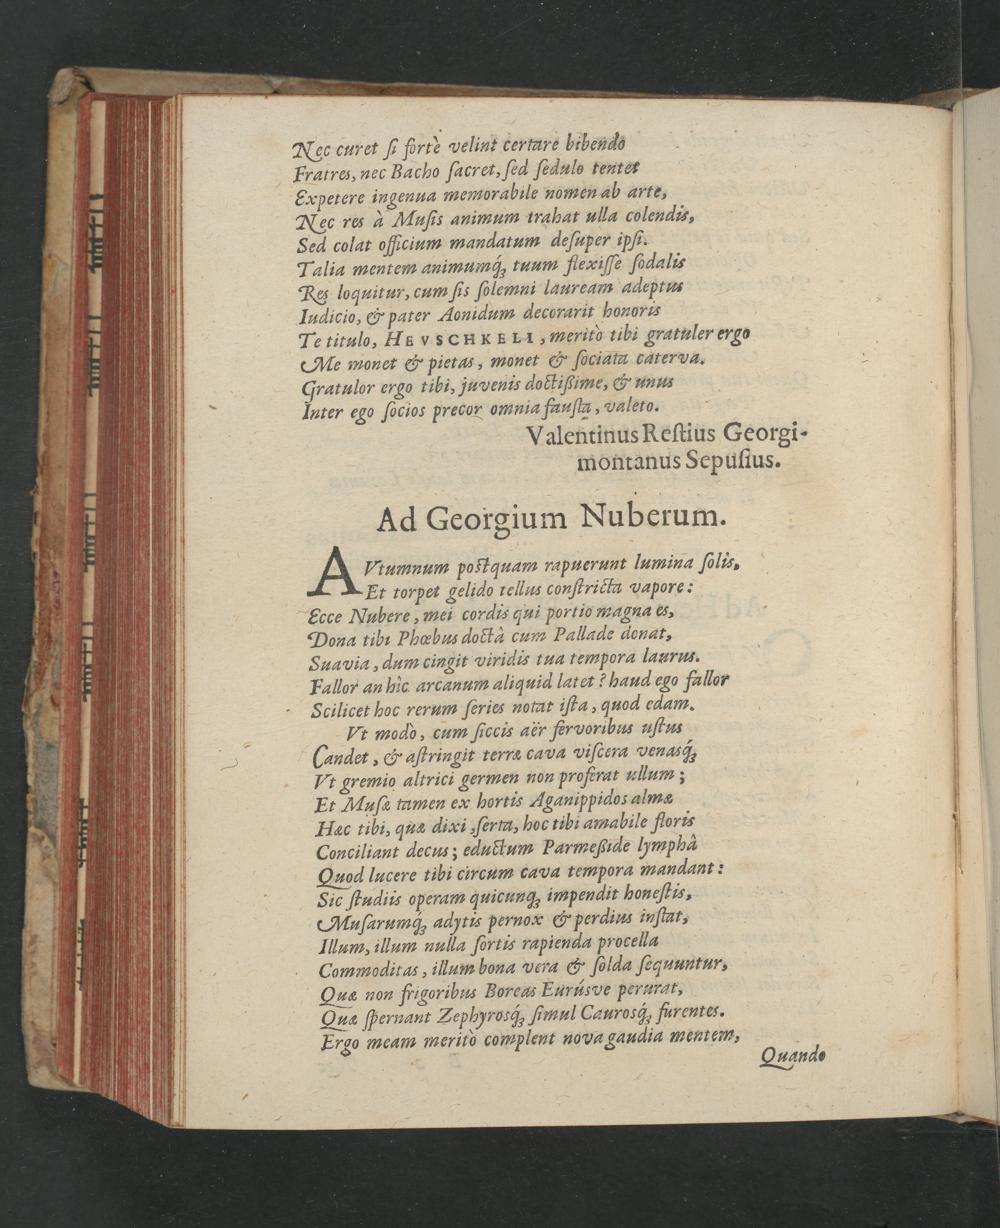 Nec curet ſi fortè velint certare bibendo
Fratres, nec Bacho ſacret, ſed ſedulo tentet
Expetere ingenua memorabile nomen ab arte,
Nec res à Muſis animum trahat ulla colendis,
Sed colat officium mandatum deſuper ipſi.
Talia mentem animumq́ꝫ tuum flexiſſe ſodalis
Res loquitur, cum ſis ſolemni lauream adeptus
Iudicio, & pater Aonidum decorarit honoris
Te titulo, HEVSCHKELI, meritò tibi gratuler ergo
Me monet & pietas, monet & ſociata caterva.
Gratulor ergo tibi, juvenis doctißime, & unus
Inter ego ſocios precor omnia fauſta, valeto.
Valentinus Reſtius Georgi-
montanus Sepuſius.
Ad Georgium Nuberum.
AVtumnum poſtquam rapuerunt lumina ſolis,
Et torpet gelido tellus conſtricta vapore:
Ecce Nubere, mei cordis qui portio magna es,
Dona tibi Phœbus doctâ cum Pallade donat,
Suavia, dum cingit viridis tua tempora laurus.
Fallor an hîc arcanum aliquid latet? haud ego fallor
Scilicet hoc rerum ſeries notat iſta, quod edam.
Vt modò, cum ſiccis aër fervoribus uſtus
Candet, & aſtringit terræ cava viſcera venasq́ꝫ
Vt gremio altrici germen non proferat ullum;
Et Muſæ tamen ex hortis Aganippidos almæ
Hæc tibi, quæ dixi, ſerta, hoc tibi amabile floris
Conciliant decus; eductum Parmeßide lymphâ
Quod lucere tibi circum cava tempora mandant:
Sic ſtudiis operam quicunqꝫ impendit honeſtis,
Muſarumq́ꝫ adytis pernox & perdius inſtat,
Illum, illum nulla fortis rapienda procella
Commoditas, illum bona vera & ſolda ſequuntur,
Quæ non frigoribus Boreas Eurúsve perurat,
Quæ ſpernant Zephyrosq́ꝫ ſimul Caurosq́ꝫ furentes.
Ergo meam meritò complent nova gaudia mentem,
Quando